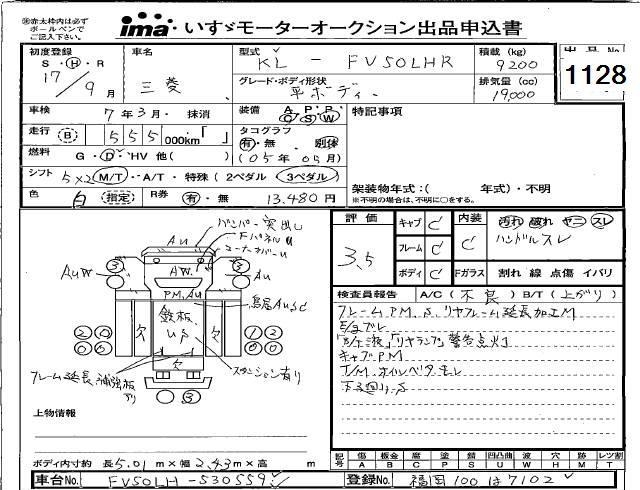 ※赤太枠内は必ず
ボールペンで
ご記入下さい。
ima いすゞモーターオークション出品申込書
初度登録 S・H・R 17/9月
車名 三菱
型式 KL - FV50LHR
積載 (kg) 9200
出品No. 1128
グレード・ボディ形状 平ボディー
排気量 (cc) 19,000
車検 7年3月・抹消
装備 A P P C S W
特記事項
走行 B 555 000km・「 」
タコグラフ 有・無・別体
(05年05月)
燃料 G・D・HV 他( )
シフト 5×2 M/T・A/T・特殊(2ペダル 3ペダル)
色 白 指定
R券 有・無 13,480円
架装物年式:( 年式)・不明
※不明の場合は、不明に○をする。
評価 3.5
キャブ C
フレーム C
ボディ C
内装 C
汚れ 破れ ヤニ スレ
ハンドルスレ
Fガラス 割れ 線 点傷 イバリ
検査員報告 A/C(不良) B/T(上がり)
フレームPM、S、リヤフレーム延長加工M
キャブPM
T/M オイルベタモレ
下廻りS
バンパー突出し
FパネルU
コーナーパネルU
AU
AUW
AW
AU
PM、AU
鳥居AUSC
鉄板 US
欠
欠
スタンション有り
フレーム延長補強板有り
上物情報
ボディ内寸約 長5.01m×幅2.43m×高 m
車台No. FV50LH-530559
記号 傷A 板金B 腐C 塗P 錆S 凹凸曲U 波W 穴H 跡M レツ割T
登録No. 福岡100は7102